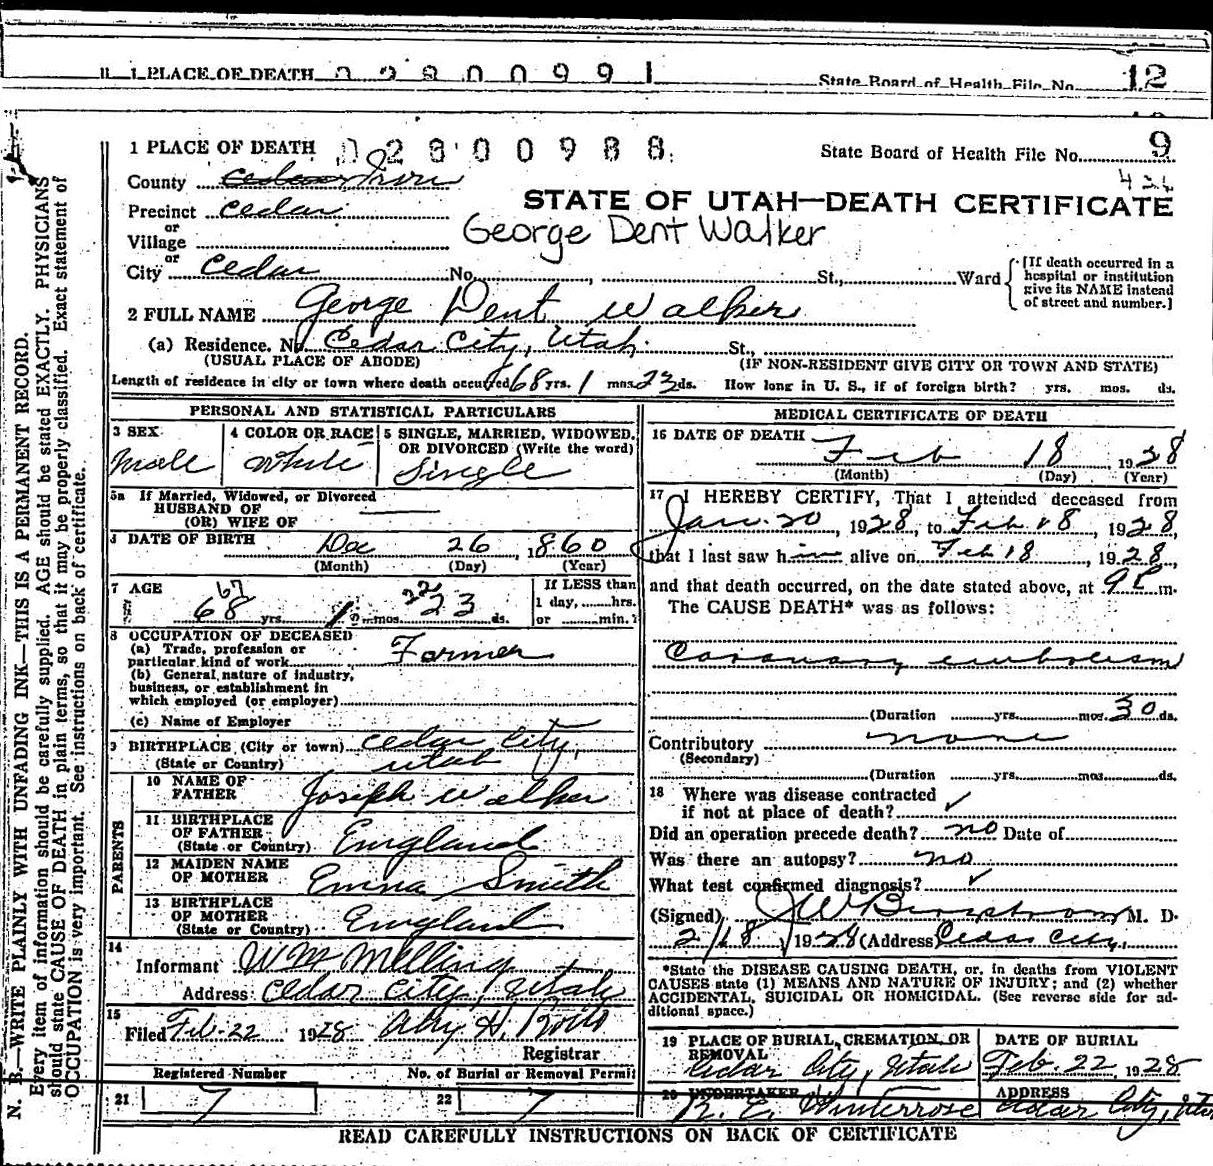 1 PLACE OF DEATH 02800991 State Board of Health File No. 12
1 PLACE OF DEATH 02800988 State Board of Health File No. 9
County Cedar Iron
434
STATE OF UTAH—DEATH CERTIFICATE
Precinct Cedar
or
Village
George Dent Walker
or
City Cedar No. St., Ward
[If death occurred in a hospital or institution give its NAME instead of street and number.]
2 FULL NAME George Dent Walker
(a) Residence. No. Cedar City, Utah. St.,
(USUAL PLACE OF ABODE) (IF NON-RESIDENT GIVE CITY OR TOWN AND STATE)
Length of residence in city or town where death occurred 68 yrs. 1 mos. 23 ds. How long in U. S., if of foreign birth? yrs. mos. ds.
PERSONAL AND STATISTICAL PARTICULARS
3 SEX 4 COLOR OR RACE 5 SINGLE, MARRIED, WIDOWED,
OR DIVORCED (Write the word)
Male White Single
5a If Married, Widowed, or Divorced
HUSBAND OF
(OR) WIFE OF
6 DATE OF BIRTH Dec 26, 1860
(Month) (Day) (Year)
7 AGE 67 22 If LESS than
68 yrs. 1 mos. 23 ds. 1 day, hrs.
or min.?
8 OCCUPATION OF DECEASED
(a) Trade, profession or
particular kind of work Farmer
(b) General nature of industry,
business, or establishment in
which employed (or employer)
(c) Name of Employer
9 BIRTHPLACE (City or town) Cedar City,
(State or Country) Utah
PARENTS
10 NAME OF
FATHER Joseph Walker
11 BIRTHPLACE
OF FATHER
(State or Country) England
12 MAIDEN NAME
OF MOTHER Emma Smith
13 BIRTHPLACE
OF MOTHER
(State or Country) England
14
Informant Wm Melling
Address Cedar City, Utah
15
Filed Feb-22 1928
Registrar
Registered Number No. of Burial or Removal Permit
21 7 22 7
MEDICAL CERTIFICATE OF DEATH
16 DATE OF DEATH
Feb 18, 1928
(Month) (Day) (Year)
17 I HEREBY CERTIFY, That I attended deceased from
Jan. 20, 1928, to Feb 18, 1928,
that I last saw him alive on Feb 18, 1928,
and that death occurred, on the date stated above, at 9 P m.
The CAUSE DEATH* was as follows:
Coronary embolism
(Duration yrs. mos. 30 ds.
Contributory none
(Secondary)
(Duration yrs. mos. ds.
18 Where was disease contracted
if not at place of death? ✓
Did an operation precede death? no Date of
Was there an autopsy? no
What test confirmed diagnosis? ✓
(Signed) M. D.
2/18, 1928 (Address) Cedar City,
*State the DISEASE CAUSING DEATH, or, in deaths from VIOLENT
CAUSES state (1) MEANS AND NATURE OF INJURY; and (2) whether
ACCIDENTAL, SUICIDAL OR HOMICIDAL. (See reverse side for ad-
ditional space.)
19 PLACE OF BURIAL, CREMATION, OR DATE OF BURIAL
REMOVAL
Cedar City, Utah Feb. 22, 1928
20 UNDERTAKER ADDRESS
R. E. Winterrose Cedar City, Utah
READ CAREFULLY INSTRUCTIONS ON BACK OF CERTIFICATE
N. B.—WRITE PLAINLY WITH UNFADING INK—THIS IS A PERMANENT RECORD.
Every item of information should be carefully supplied. AGE should be stated EXACTLY. PHYSICIANS
should state CAUSE OF DEATH in plain terms, so that it may be properly classified. Exact statement of
OCCUPATION is very important. See instructions on back of certificate.